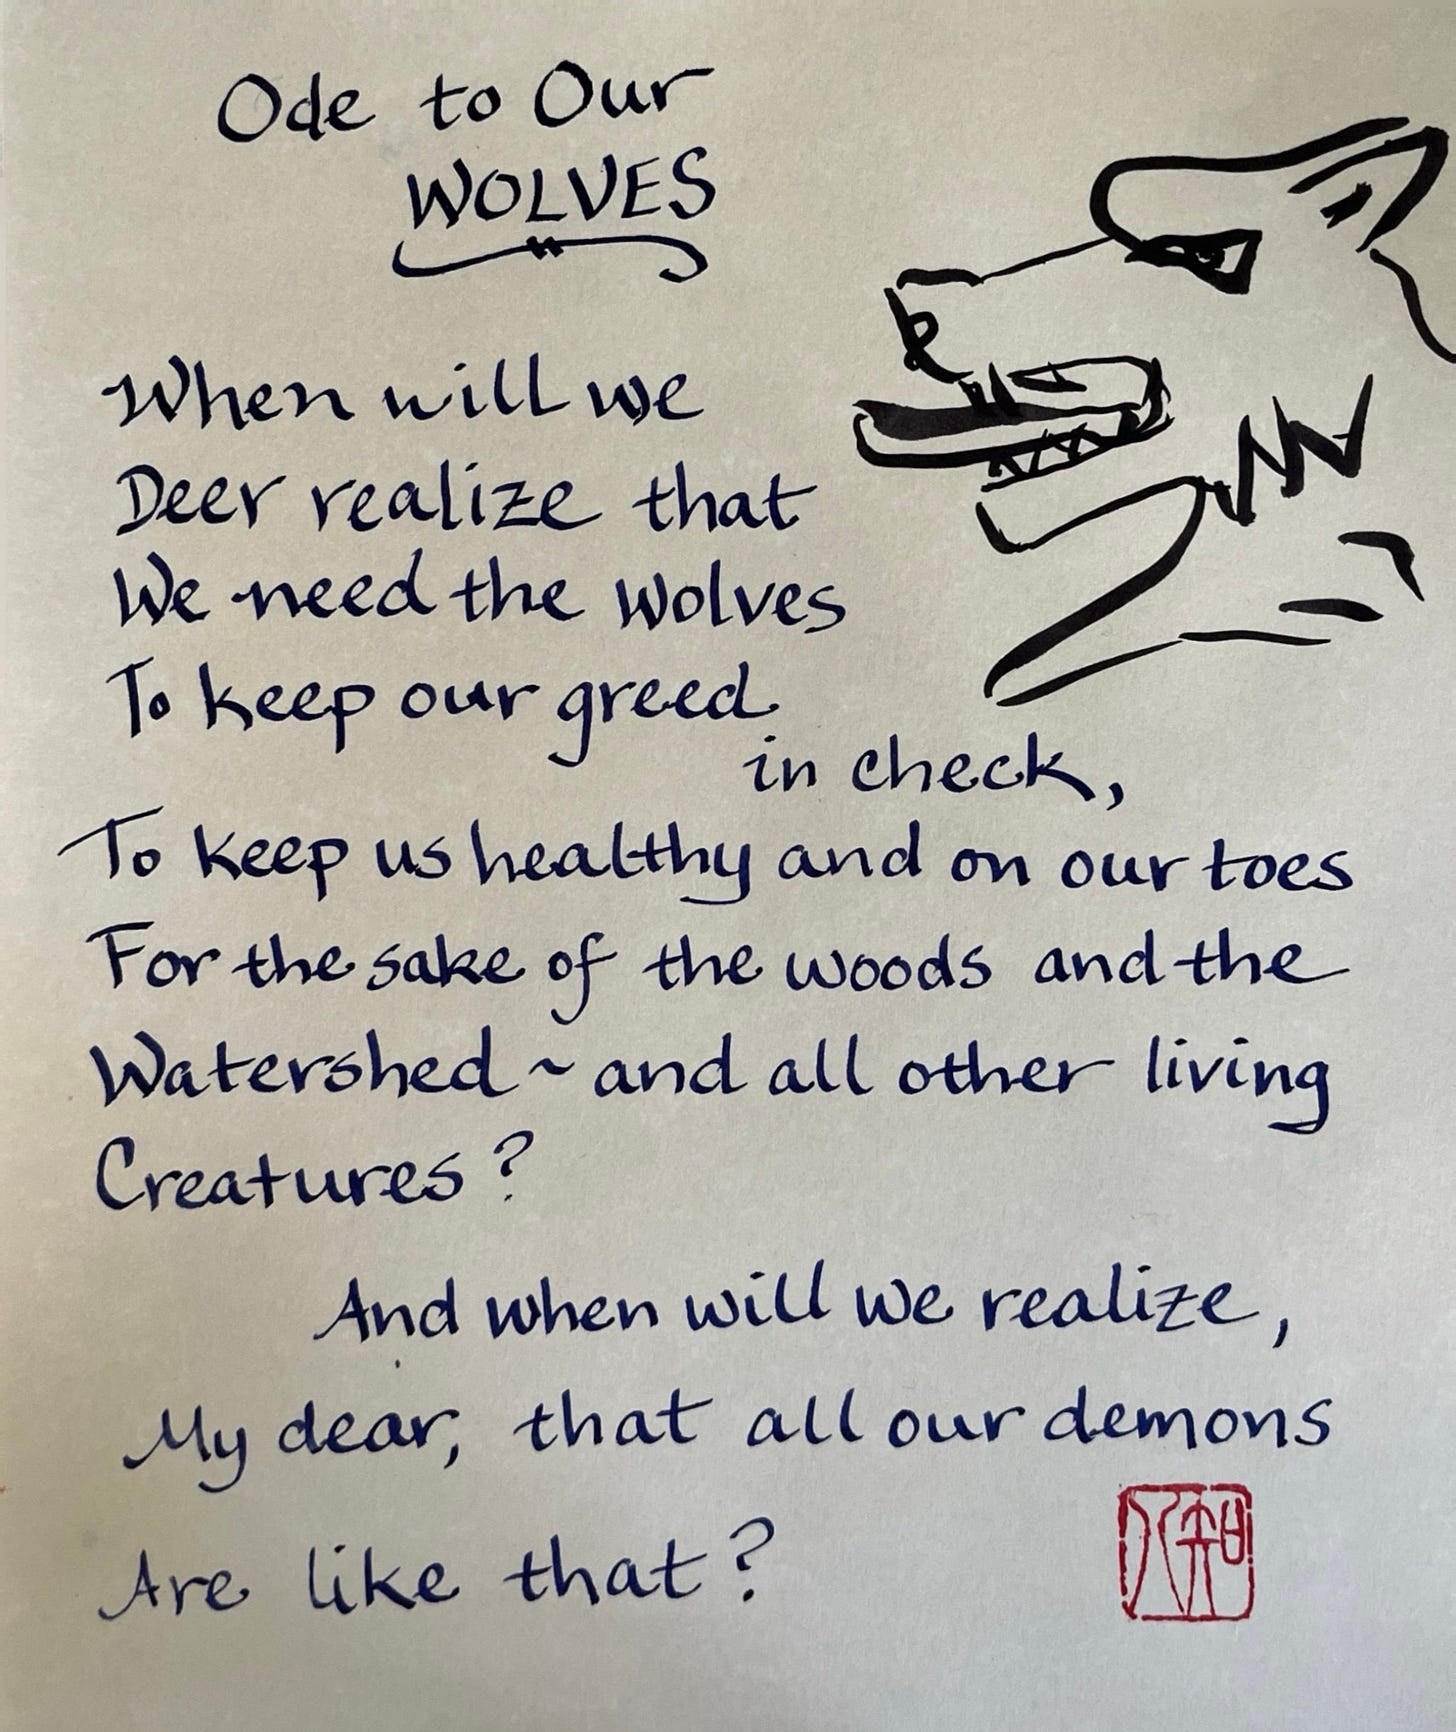 Ode to Our
WOLVES
When will we
Deer realize that
We need the Wolves
To keep our greed
in check,
To keep us healthy and on our toes
For the sake of the woods and the
Watershed ~ and all other living
Creatures?
And when will we realize,
My dear, that all our demons
Are like that?